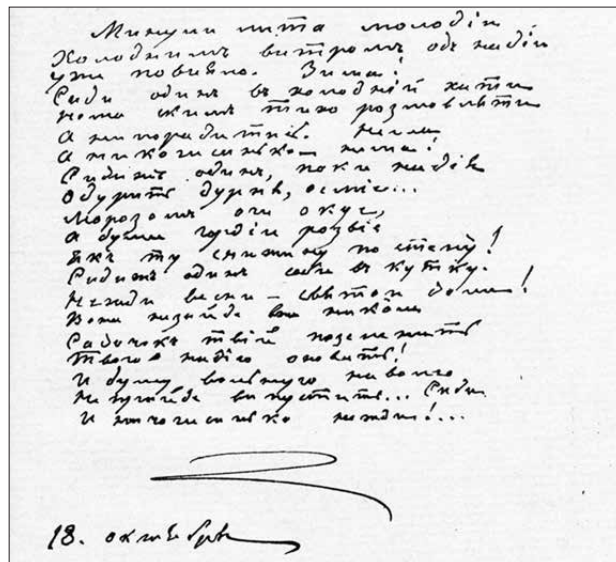 Минули лита молодіи
Холоднимъ витромъ одъ надіи
Уже повіяло. Зима!
Сиди одинъ въ холодній хати
Нема съ кимъ тихо розмовлять
А ни порадитись. Нема
А никогисинько нема!
Сиди жъ одинъ, поки надія
Одурить дурня, осміє...
Морозомъ очи окує,
А думи гордіи розвіє
Якъ ту снижину по степу!
Сиди жъ одинъ соби въ кутку.
Не жди весни — святои доли!
Вона не зійде вже николи
Садочокъ твій позеленить
Твою надію оновить!
И думу вольную на волю
Не прійде випустить... Сиди
И ничогисинько не жди!...
18. октября